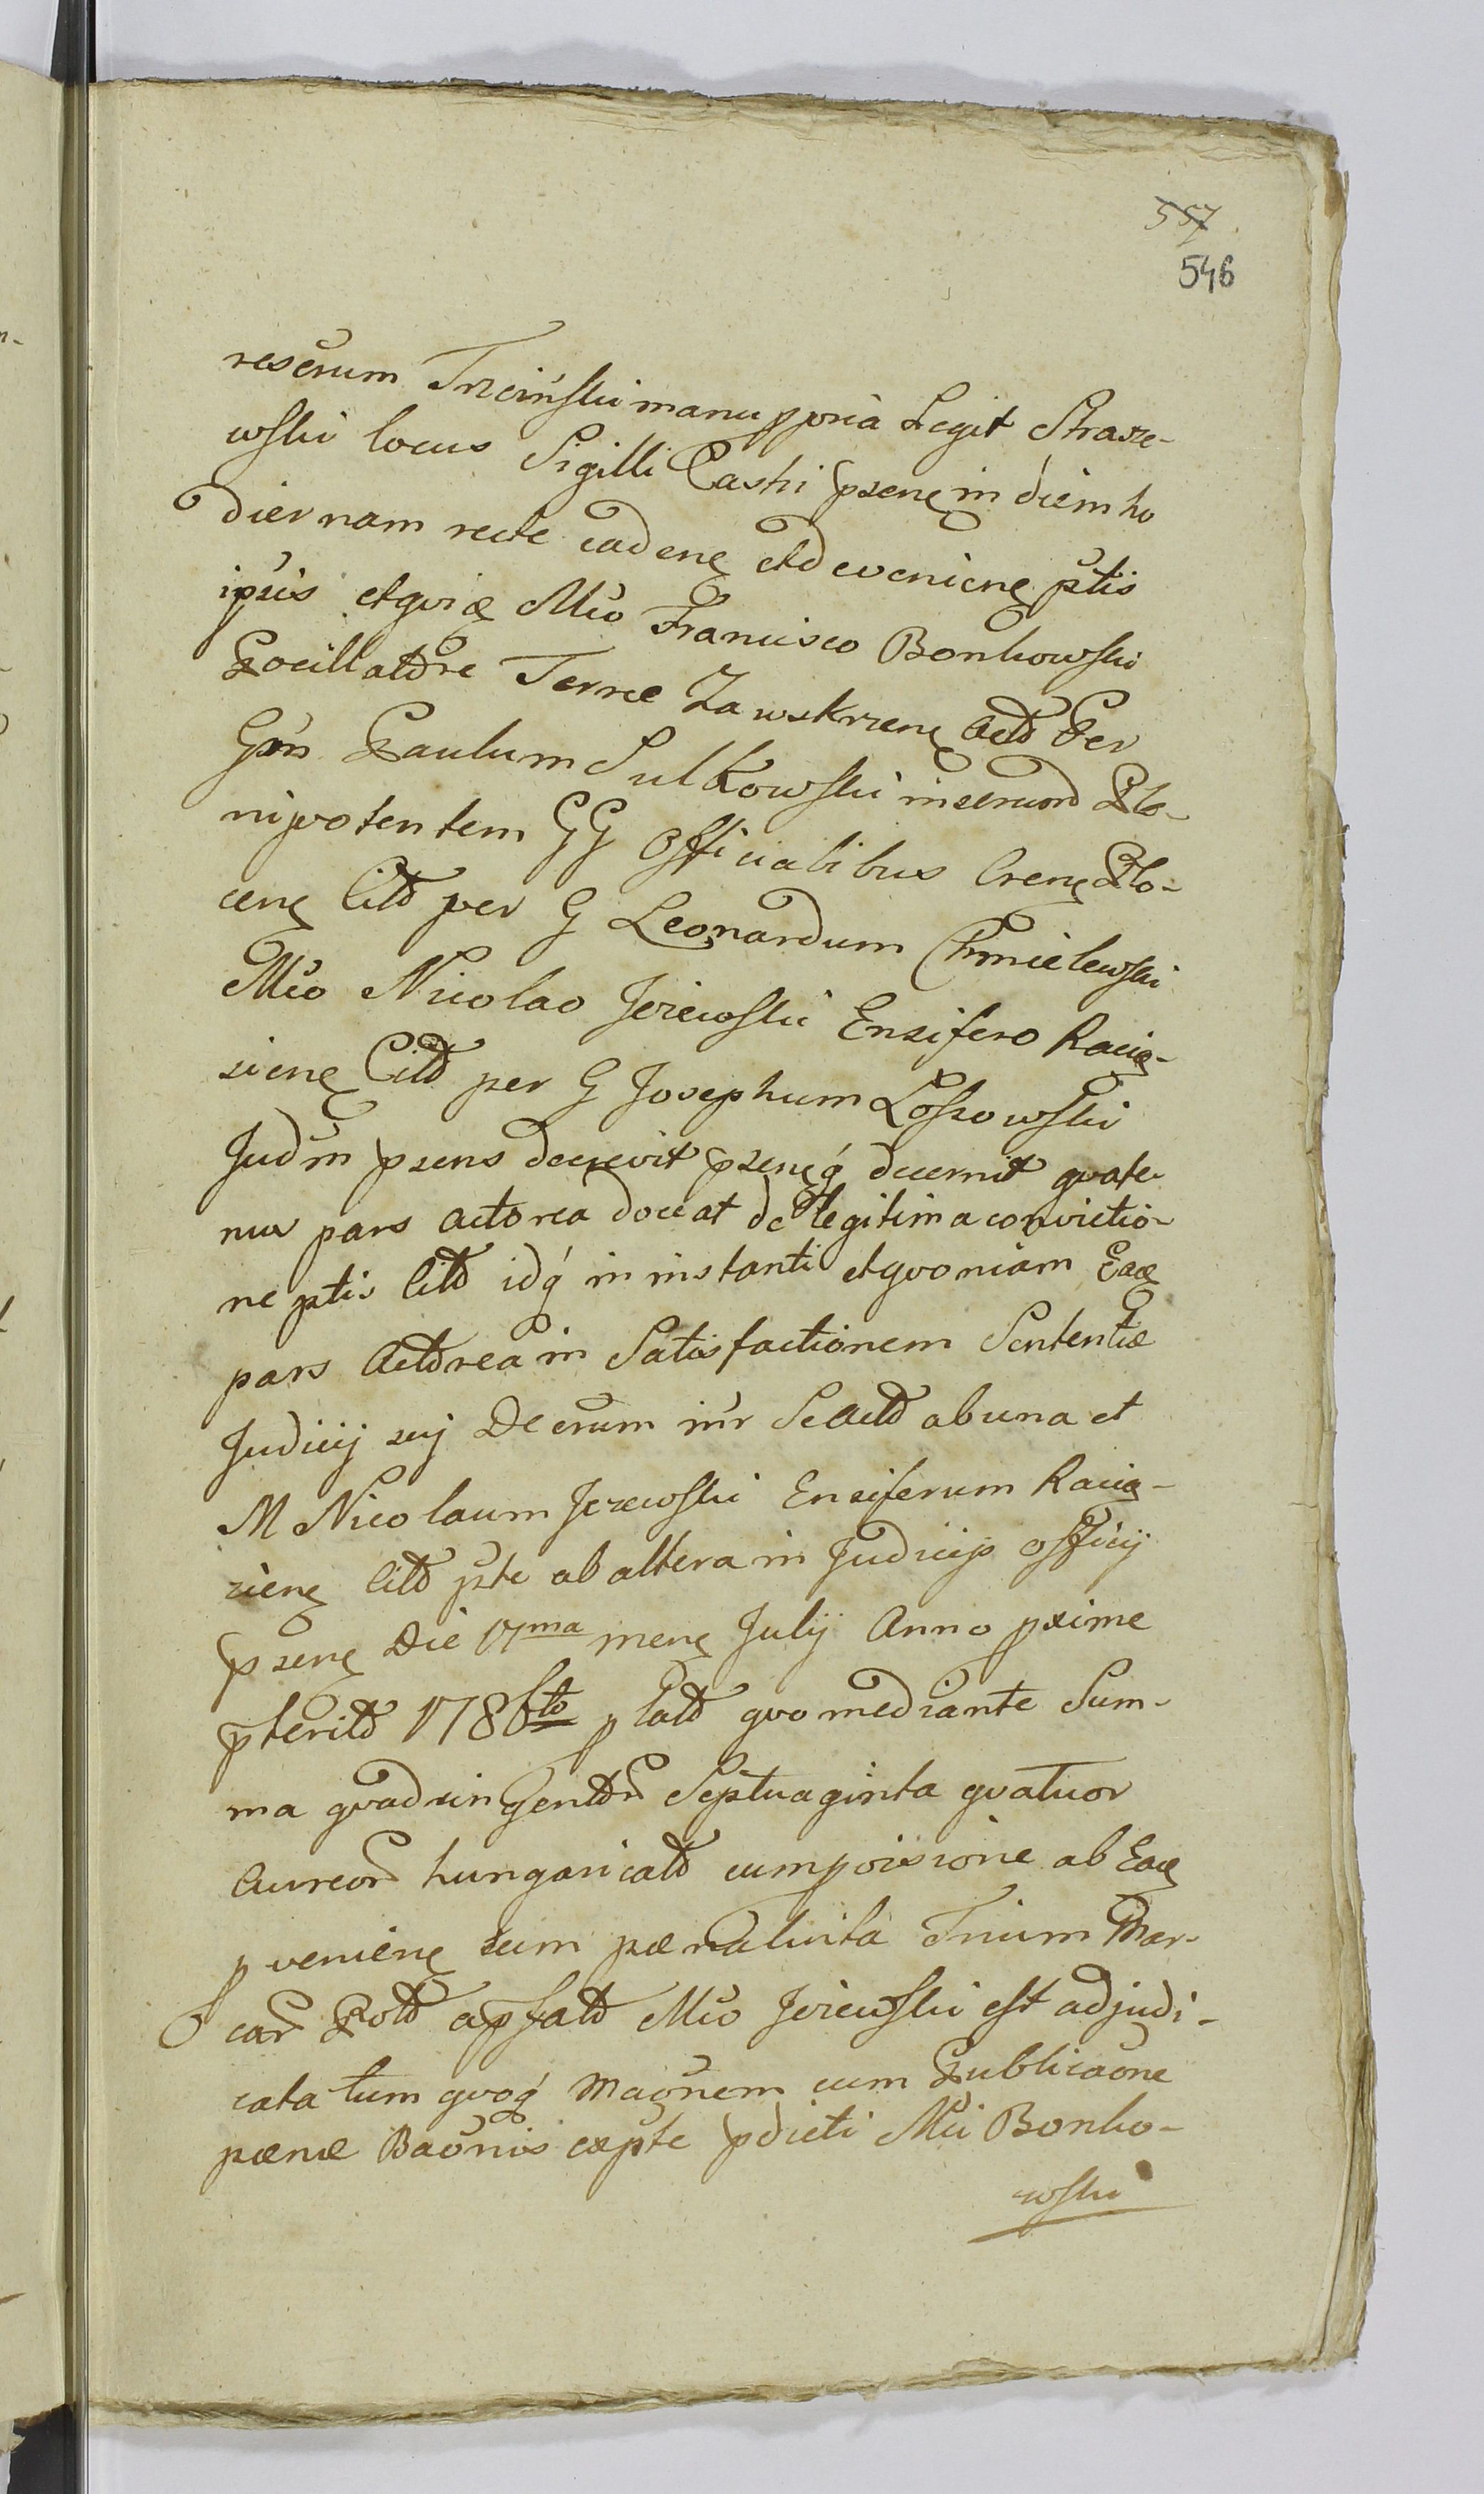 557
546
rescrum Trzcinski manu ppria Legit Strasze-
wski locus Sigilli Castri psenę in diem ho
diernam recte cadenę et devenienę ptis
ipsis et qvia Mco Francisco Bonkowski
Pocillatore Terræ Zawskrzenę Act Per
Gsn Paulum Sulkowski inserund Ple-
nipotentem GG Officialibus Crenę Plo-
cenę Citt per G Leonardum Chmielewski
Mco Nicolao Jezewski Ensifero Racią-
zienę Citt per G Josephum Lossowski
Judm psens decrevit psenęq decernit qvate-
nus pars Actorea doceat de legitima convictio-
ne ptis Citt idq in instanti et qvoniam Eadę
pars Actorea in Satisfactionem Sententiæ
Judicij sui Decrum inr Se Act ab una et
M Nicolaum Jezewski Ensiferum Racią-
zienę Citt pte ab altera in Judicijs Officij
psenę Die 17ma menę Julij Anno pxime
pterito 1786to plat qvo mediante Sum-
ma qvadringentor Septuaginta qvatuor
Aureor hungaricalt cum pvisione ab Eadę
pvenienę cum pæna luita Trium Mar-
car Polt apsat Mco Jezewski est adjudi-
cata tum qvoq Maonem cum Publicaone
pænæ Baonis ex pte pdicti Mci Bonko-
wski